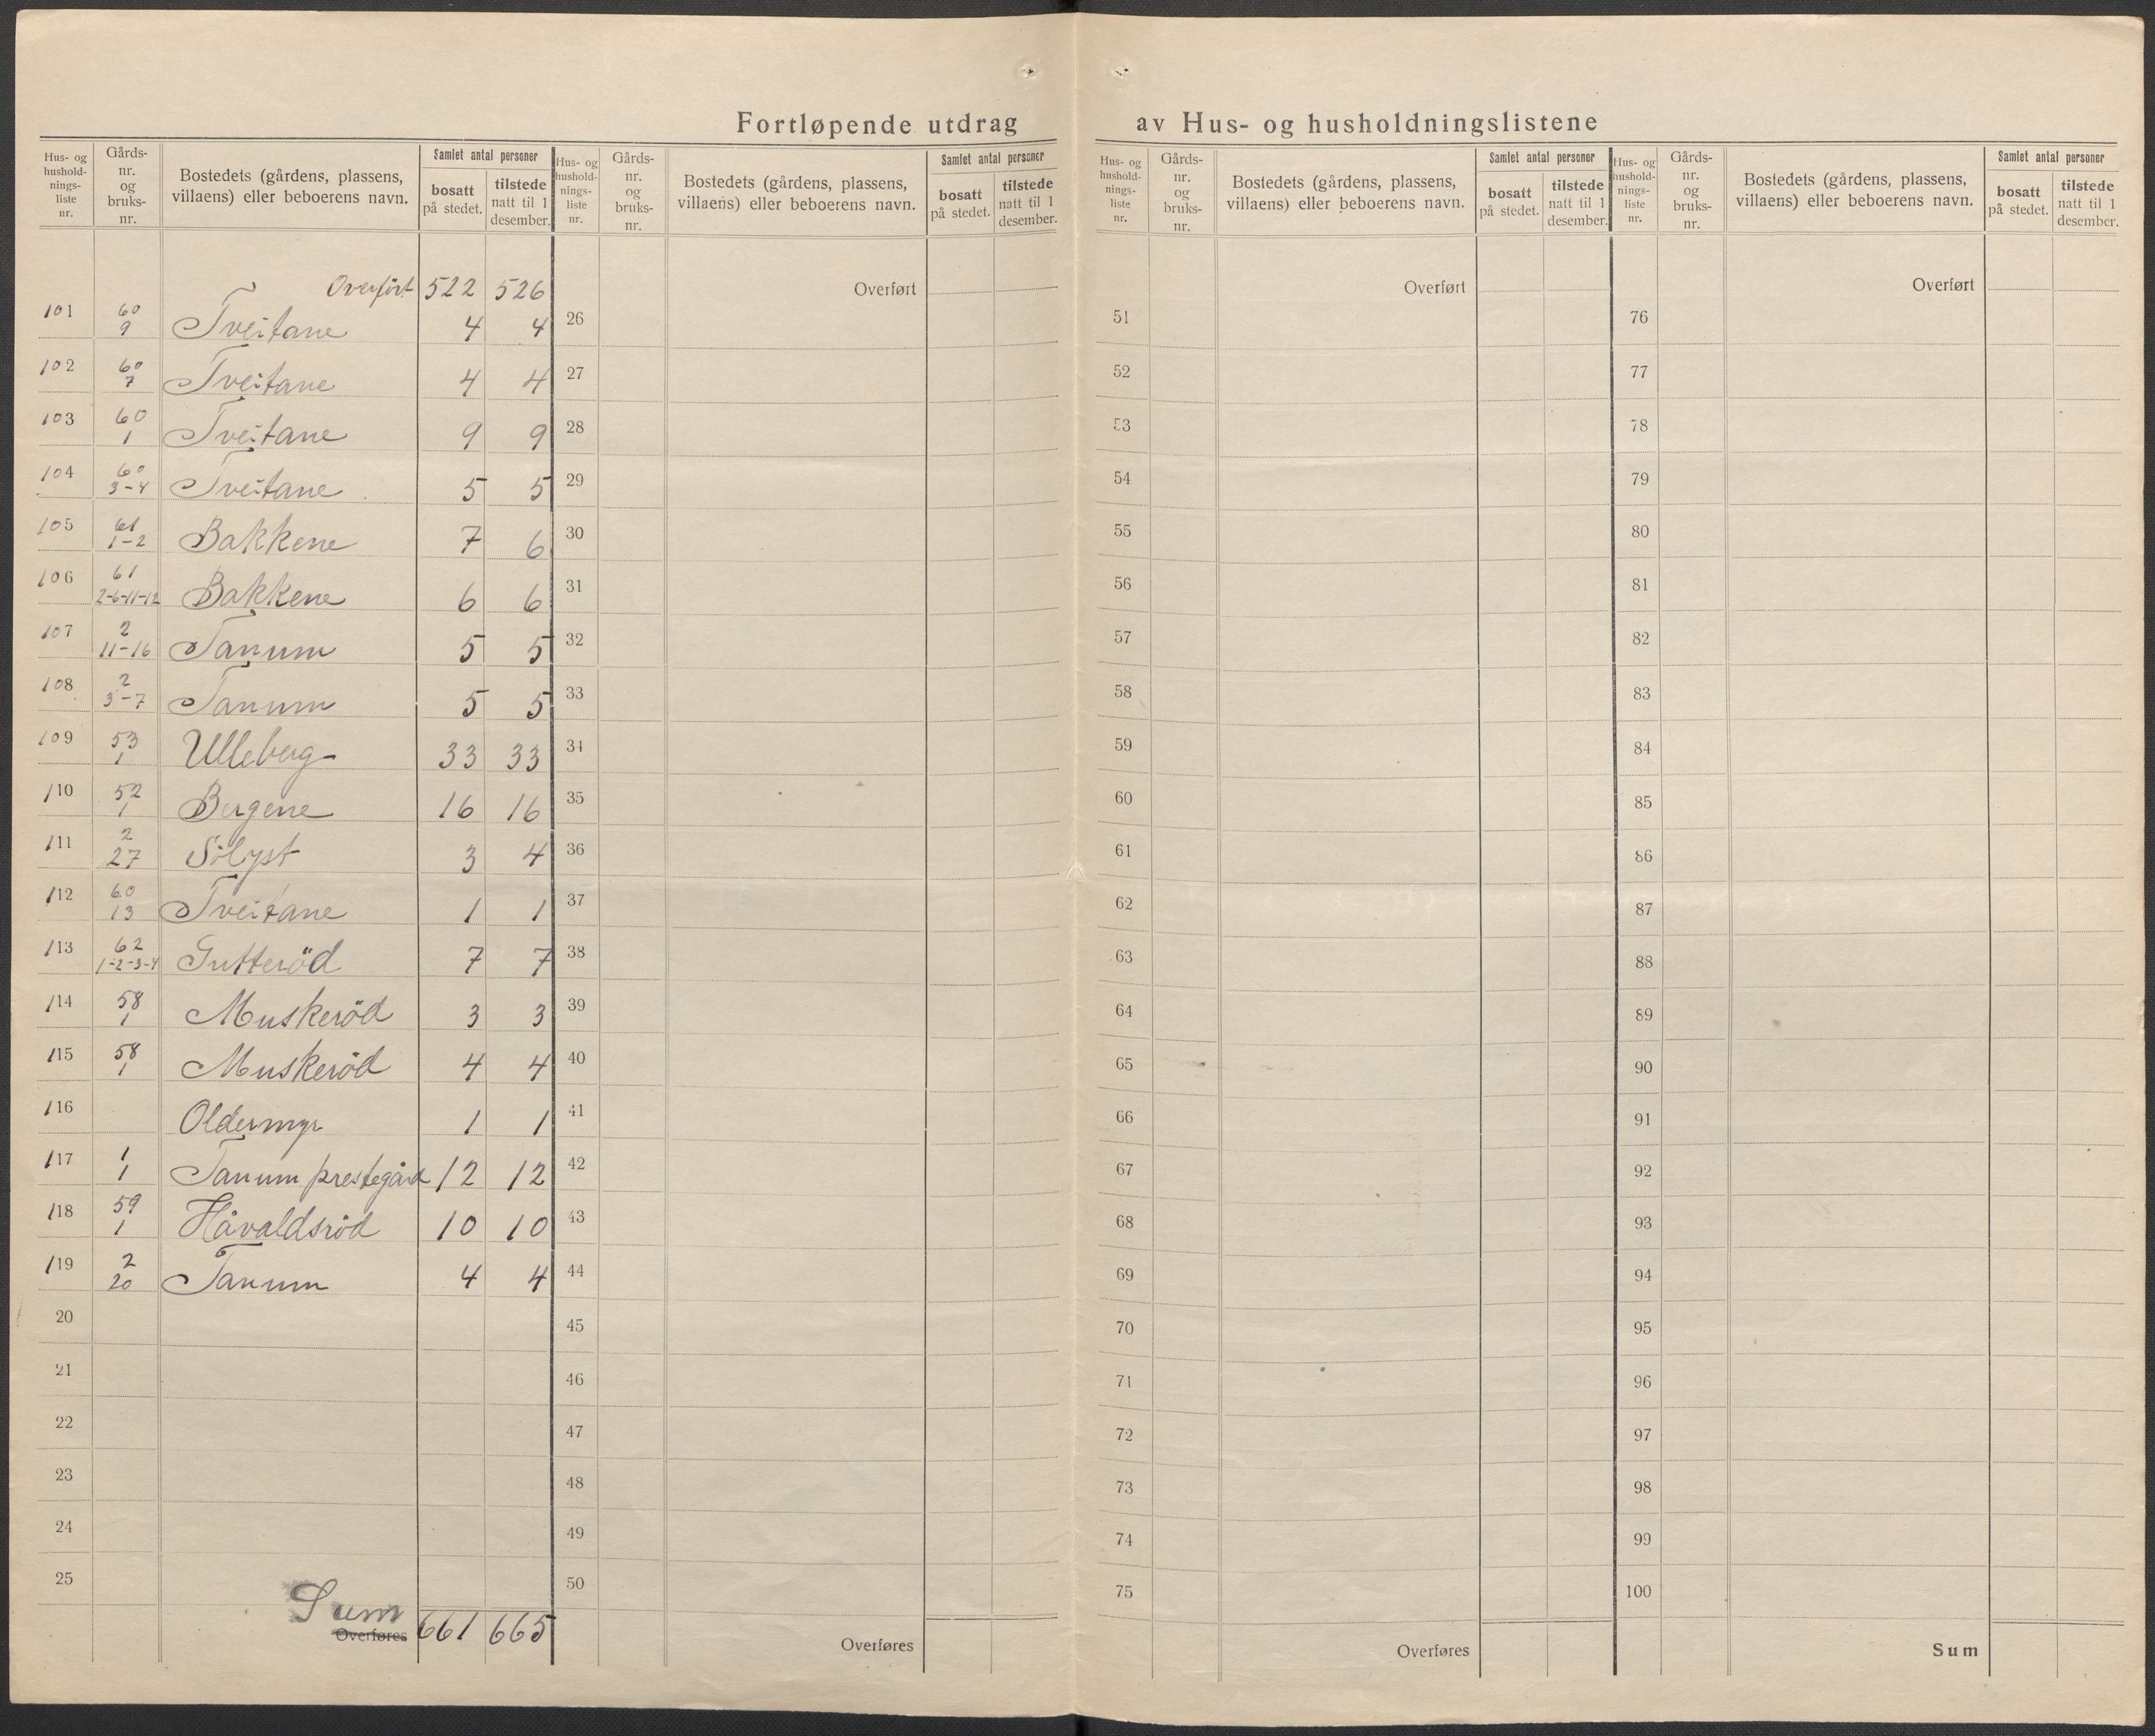 Fortløpende utdrag av Hus- og husholdningslistene
Hus- og hushold-nings-liste nr. Gårds-nr. og bruks-nr. Bostedets (gårdens, plassens, villaens) eller beboerens navn. Samlet antal personer bosatt på stedet. tilstede natt til 1 desember.
Overfört 522 526
101 60 9 Tveitane 4 4
102 60 7 Tveitane 4 4
103 60 1 Tveitane 9 9
104 60 3-4 Tveitane 5 5
105 61 1-2 Bakkene 7 6
106 61 2-6-11-12 Bakkene 6 6
107 2 11-16 Tanum 5 5
108 2 3-7 Tanum 5 5
109 53 1 Ulleberg 33 33
110 52 1 Bergene 16 16
111 2 27 Sölyst 3 4
112 60 13 Tveitane 1 1
113 62 1-2-3-4 Gutteröd 7 7
114 58 1 Muskeröd 3 3
115 58 1 Muskeröd 4 4
116 Oldermyr 1 1
117 1 1 Tanum prestegård 12 12
118 59 1 Håvaldsröd 10 10
119 2 20 Tanum 4 4
20
21
22
23
24
25
Sum 661 665
Overføres
Hus- og hushold-nings-liste nr. Gårds-nr. og bruks-nr. Bostedets (gårdens, plassens, villaens) eller beboerens navn. Samlet antal personer bosatt på stedet. tilstede natt til 1 desember.
Overført
26
27
28
29
30
31
32
33
34
35
36
37
38
39
40
41
42
43
44
45
46
47
48
49
50
Overføres
Hus- og hushold-nings-liste nr. Gårds-nr. og bruks-nr. Bostedets (gårdens, plassens, villaens) eller beboerens navn. Samlet antal personer bosatt på stedet. tilstede natt til 1 desember.
Overført
51
52
53
54
55
56
57
58
59
60
61
62
63
64
65
66
67
68
69
70
71
72
73
74
75
Overføres
Hus- og hushold-nings-liste nr. Gårds-nr. og bruks-nr. Bostedets (gårdens, plassens, villaens) eller beboerens navn. Samlet antal personer bosatt på stedet. tilstede natt til 1 desember.
Overført
76
77
78
79
80
81
82
83
84
85
86
87
88
89
90
91
92
93
94
95
96
97
98
99
100
Sum